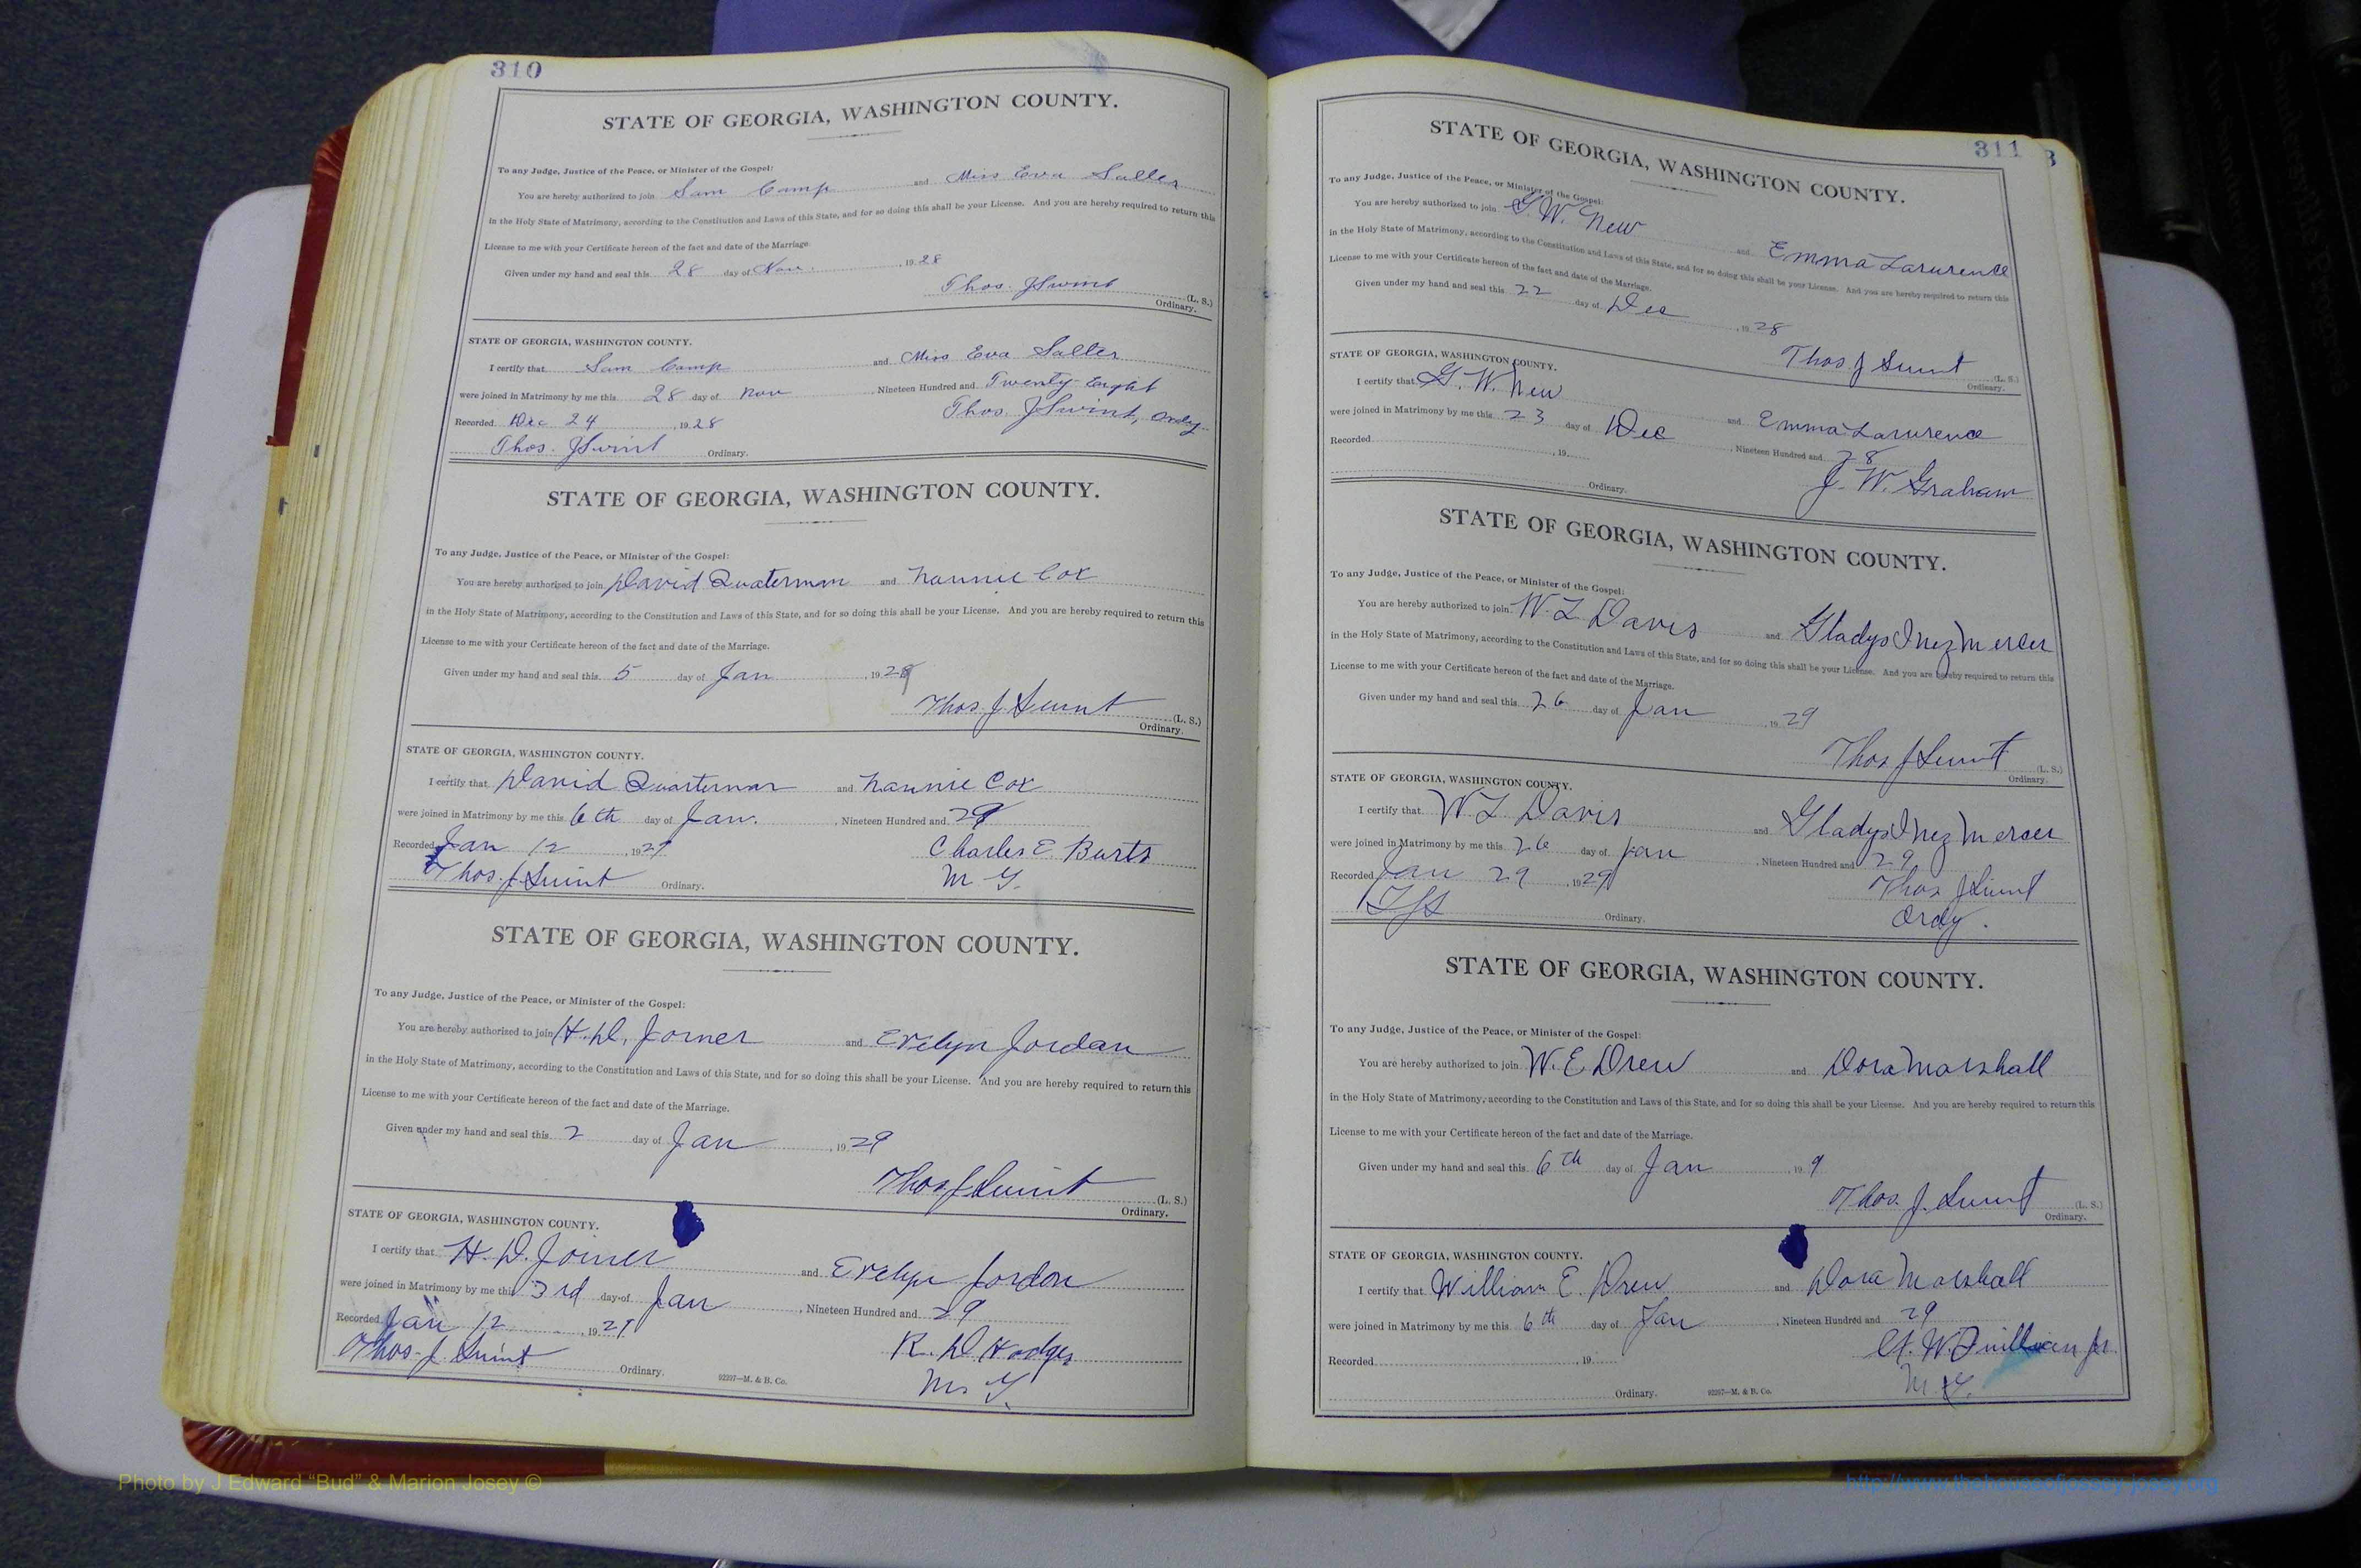 310
STATE OF GEORGIA, WASHINGTON COUNTY.
To any Judge, Justice of the Peace, or Minister of the Gospel:
You are hereby authorized to join Sam Camp and Miss Eva Salter
in the Holy State of Matrimony, according to the Constitution and Laws of this State, and for so doing this shall be your License. And you are hereby required to return this
License to me with your Certificate hereon of the fact and date of the Marriage.
Given under my hand and seal this 28 day of Nov. , 1928
Thos. J Swint (L. S.)
Ordinary.
STATE OF GEORGIA, WASHINGTON COUNTY.
I certify that Sam Camp and Miss Eva Salter
were joined in Matrimony by me this 28 day of Nov , Nineteen Hundred and Twenty-Eight
Recorded Dec 24 , 1928 Thos. J Swint, Ordy.
Thos. J Swint Ordinary.
STATE OF GEORGIA, WASHINGTON COUNTY.
To any Judge, Justice of the Peace, or Minister of the Gospel:
You are hereby authorized to join David Quaterman and Nannie Cox
in the Holy State of Matrimony, according to the Constitution and Laws of this State, and for so doing this shall be your License. And you are hereby required to return this
License to me with your Certificate hereon of the fact and date of the Marriage.
Given under my hand and seal this 5 day of Jan , 1929
Thos. J. Swint (L. S.)
Ordinary.
STATE OF GEORGIA, WASHINGTON COUNTY.
I certify that David Quarterman and Nannie Cox
were joined in Matrimony by me this 6th day of Jan. , Nineteen Hundred and 29
Recorded Jan 12 , 1929 Charles E. Burts
Thos. J. Swint Ordinary. M G.
STATE OF GEORGIA, WASHINGTON COUNTY.
To any Judge, Justice of the Peace, or Minister of the Gospel:
You are hereby authorized to join H. D. Joiner and Evelyn Jordan
in the Holy State of Matrimony, according to the Constitution and Laws of this State, and for so doing this shall be your License. And you are hereby required to return this
License to me with your Certificate hereon of the fact and date of the Marriage.
Given under my hand and seal this 2 day of Jan , 1929
Thos J Swint (L. S.)
Ordinary.
STATE OF GEORGIA, WASHINGTON COUNTY.
I certify that H. D. Joiner and Evelyn Jordon
were joined in Matrimony by me this 3rd day of Jan , Nineteen Hundred and 29
Recorded Jan 12 , 1929 R. D Hodges
Thos. J. Swint Ordinary. 92397—M. & B. Co. M. G.
311
STATE OF GEORGIA, WASHINGTON COUNTY.
To any Judge, Justice of the Peace, or Minister of the Gospel:
You are hereby authorized to join G. W. New and Emma Lawrence
in the Holy State of Matrimony, according to the Constitution and Laws of this State, and for so doing this shall be your License. And you are hereby required to return this
License to me with your Certificate hereon of the fact and date of the Marriage.
Given under my hand and seal this 22 day of Dec , 1928
Thos. J Swint (L. S.)
Ordinary.
STATE OF GEORGIA, WASHINGTON COUNTY.
I certify that G. W. New and Emma Lawrence
were joined in Matrimony by me this 23 day of Dec , Nineteen Hundred and 28
Recorded , 19 J. W. Graham
Ordinary.
STATE OF GEORGIA, WASHINGTON COUNTY.
To any Judge, Justice of the Peace, or Minister of the Gospel:
You are hereby authorized to join W. L Davis and Gladys Inez Mercer
in the Holy State of Matrimony, according to the Constitution and Laws of this State, and for so doing this shall be your License. And you are hereby required to return this
License to me with your Certificate hereon of the fact and date of the Marriage.
Given under my hand and seal this 26 day of Jan , 1929
Thos J Swint (L. S.)
Ordinary.
STATE OF GEORGIA, WASHINGTON COUNTY.
I certify that W L Davis and Gladys Inez Mercer
were joined in Matrimony by me this 26 day of Jan , Nineteen Hundred and 29
Recorded Jan 29 , 1929 Thos J Swint
TJS Ordinary. Ordy.
STATE OF GEORGIA, WASHINGTON COUNTY.
To any Judge, Justice of the Peace, or Minister of the Gospel:
You are hereby authorized to join W. E Drew and Dora Marshall
in the Holy State of Matrimony, according to the Constitution and Laws of this State, and for so doing this shall be your License. And you are hereby required to return this
License to me with your Certificate hereon of the fact and date of the Marriage.
Given under my hand and seal this 6th day of Jan , 19 9
Thos. J. Swint (L. S.)
Ordinary.
STATE OF GEORGIA, WASHINGTON COUNTY.
I certify that William E. Drew and Dora Marshall
were joined in Matrimony by me this 6th day of Jan , Nineteen Hundred and 29
Recorded , 19 W. Quillian Jr.
Ordinary. 92397—M. & B. Co. M. G.
Photo by J Edward “Bud” & Marion Josey ©
http://www.thehouseofjossey-josey.org